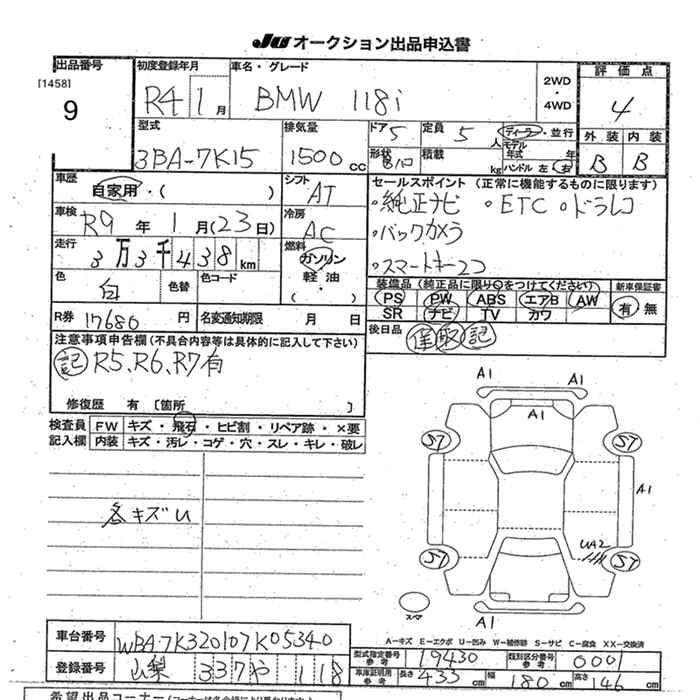 JU オークション出品申込書
出品番号 初度登録年月 車名・グレード 2WD ・ 4WD 評価点
[1458] 9 R4 1月 BMW 118i 4
型式 排気量 ドア 5 定員 5人 ディーラー・並行 外装 内装
3BA-7K15 1500cc 形状 積載 kg モデル年式 年 ハンドル 左 右 B B
車歴 自家用・( ) シフト AT セールスポイント (正常に機能するものに限ります)
車検 R9年 1月(23日) 冷房 AC ・純正ナビ ・ETC ・ドラレコ
・バックカメラ
走行 3万3千438km 燃料 ガソリン 軽油 ・( ) ・スマートキー2コ
色 白 色替 色コード 装備品 (純正品に限り○をつけてください) 新車保証書
PS PW ABS エアB AW 有・無
SR ナビ TV カワ
R券 17680円 名変通知期限 月 日 後日品 保 取 記
注意事項申告欄(不具合内容等は具体的に記入して下さい)
記 R5、R6、R7有
修復歴 有 [箇所 ]
検査員 FW キズ・飛石・ヒビ割・リペア跡・×要
記入欄 内装 キズ・汚レ・コゲ・穴・スレ・キレ・破レ
A1 A1
A1
ST ST
A1
各キズU
UA2
ST ST
スペア
A1
A-キズ E-エクボ U-凹み W-補修跡 S-サビ C-腐食 XX-交換済
車台番号 WBA7K320107K05340
型式指定番号 参考 19430 類別区分番号 参考 0001
登録番号 山梨 337や 118
車庫証明用 参考 長さ 433cm 幅 180cm 高さ 146cm
希望出品コーナー